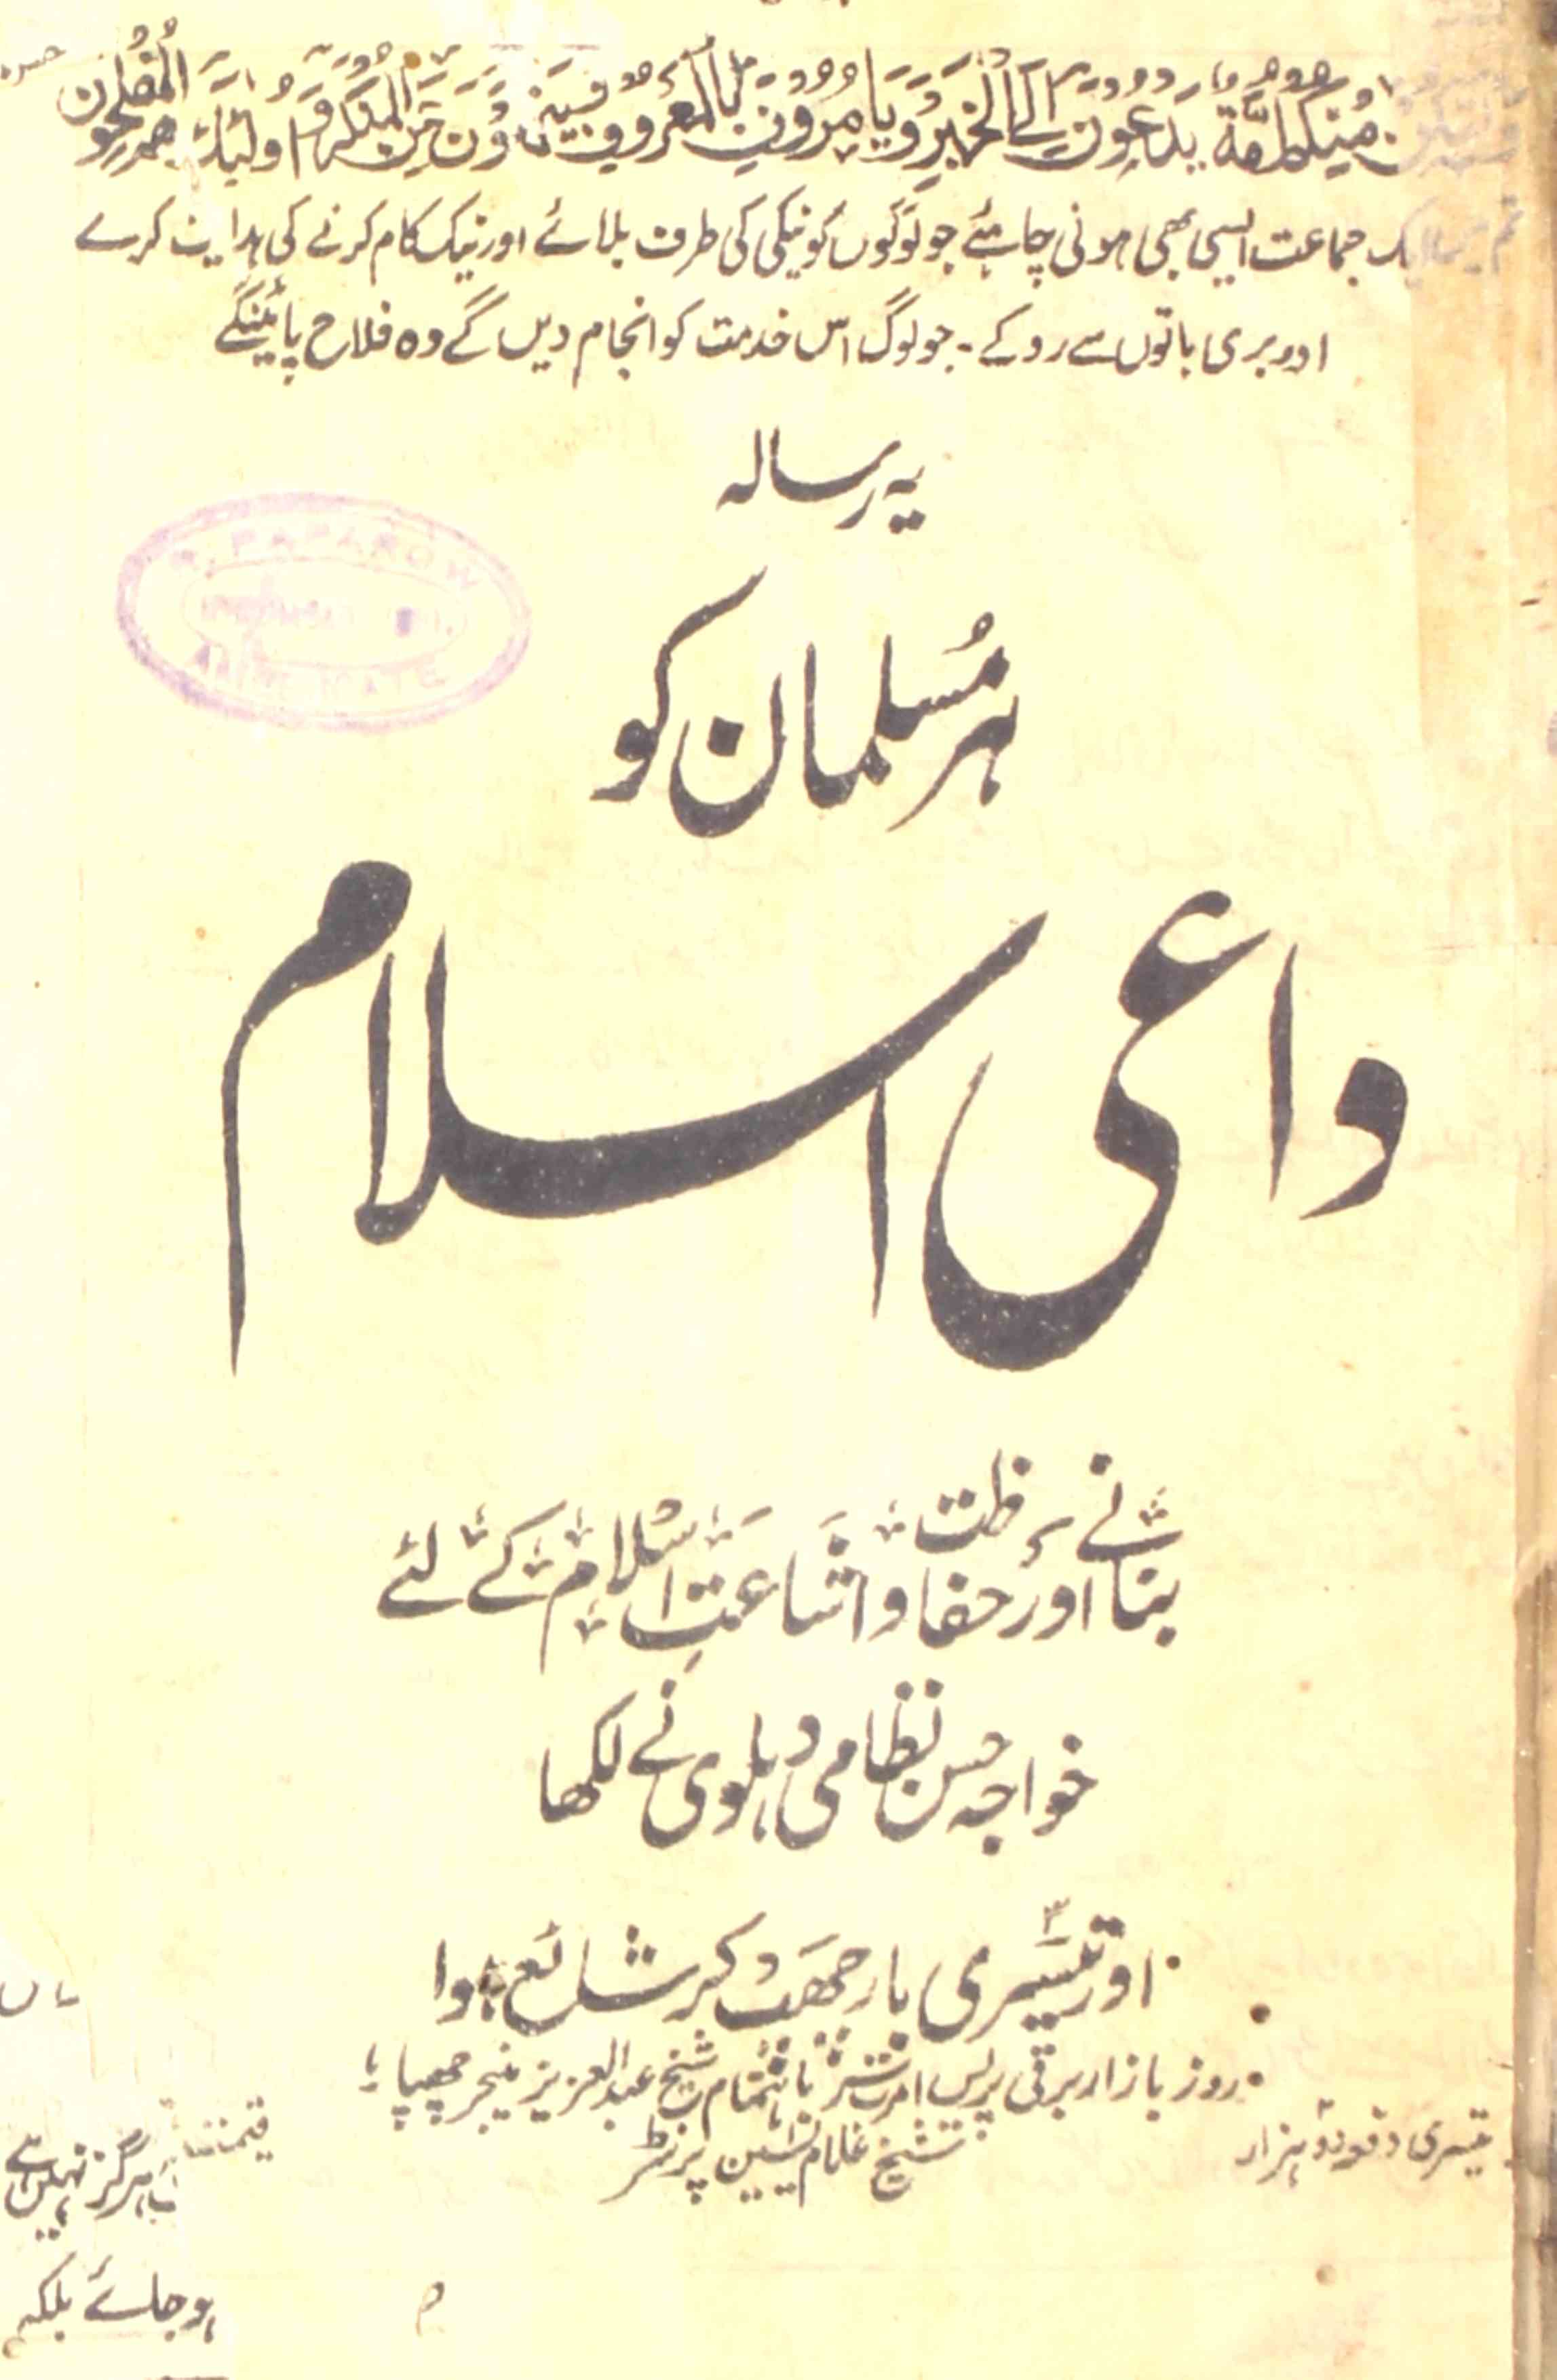 منکم امة یدعون الی الخیر ویامرون بالمعروف وینهون عن المنکر واولٰئک هم المفلحون
جماعت ایسی بھی ہونی چاہئے جو لوگوں کو نیکی کی طرف بلائے اور نیک کام کرنے کی ہدایت کرے
اور بری باتوں سے روکے۔ جو لوگ اس خدمت کو انجام دیں گے وہ فلاح پائینگے
یہ رسالہ
ہر مُسلمان کو
داعی اسلام
بنانے اور حفاظت و اشاعتِ اسلام کے لئے
خواجہ حسن نظامی دہلوی نے لکھا
اور تیسری بار چھپ کر شائع ہوا
روز بازار برقی پریس امرتسر باہتمام شیخ عبدالعزیز منیجر چھپا
شیخ غلام یٰسین پرنٹر
تیسری دفعہ دو ہزار
قیمت
ہرگز نہیں
ہو جائے بلکہ